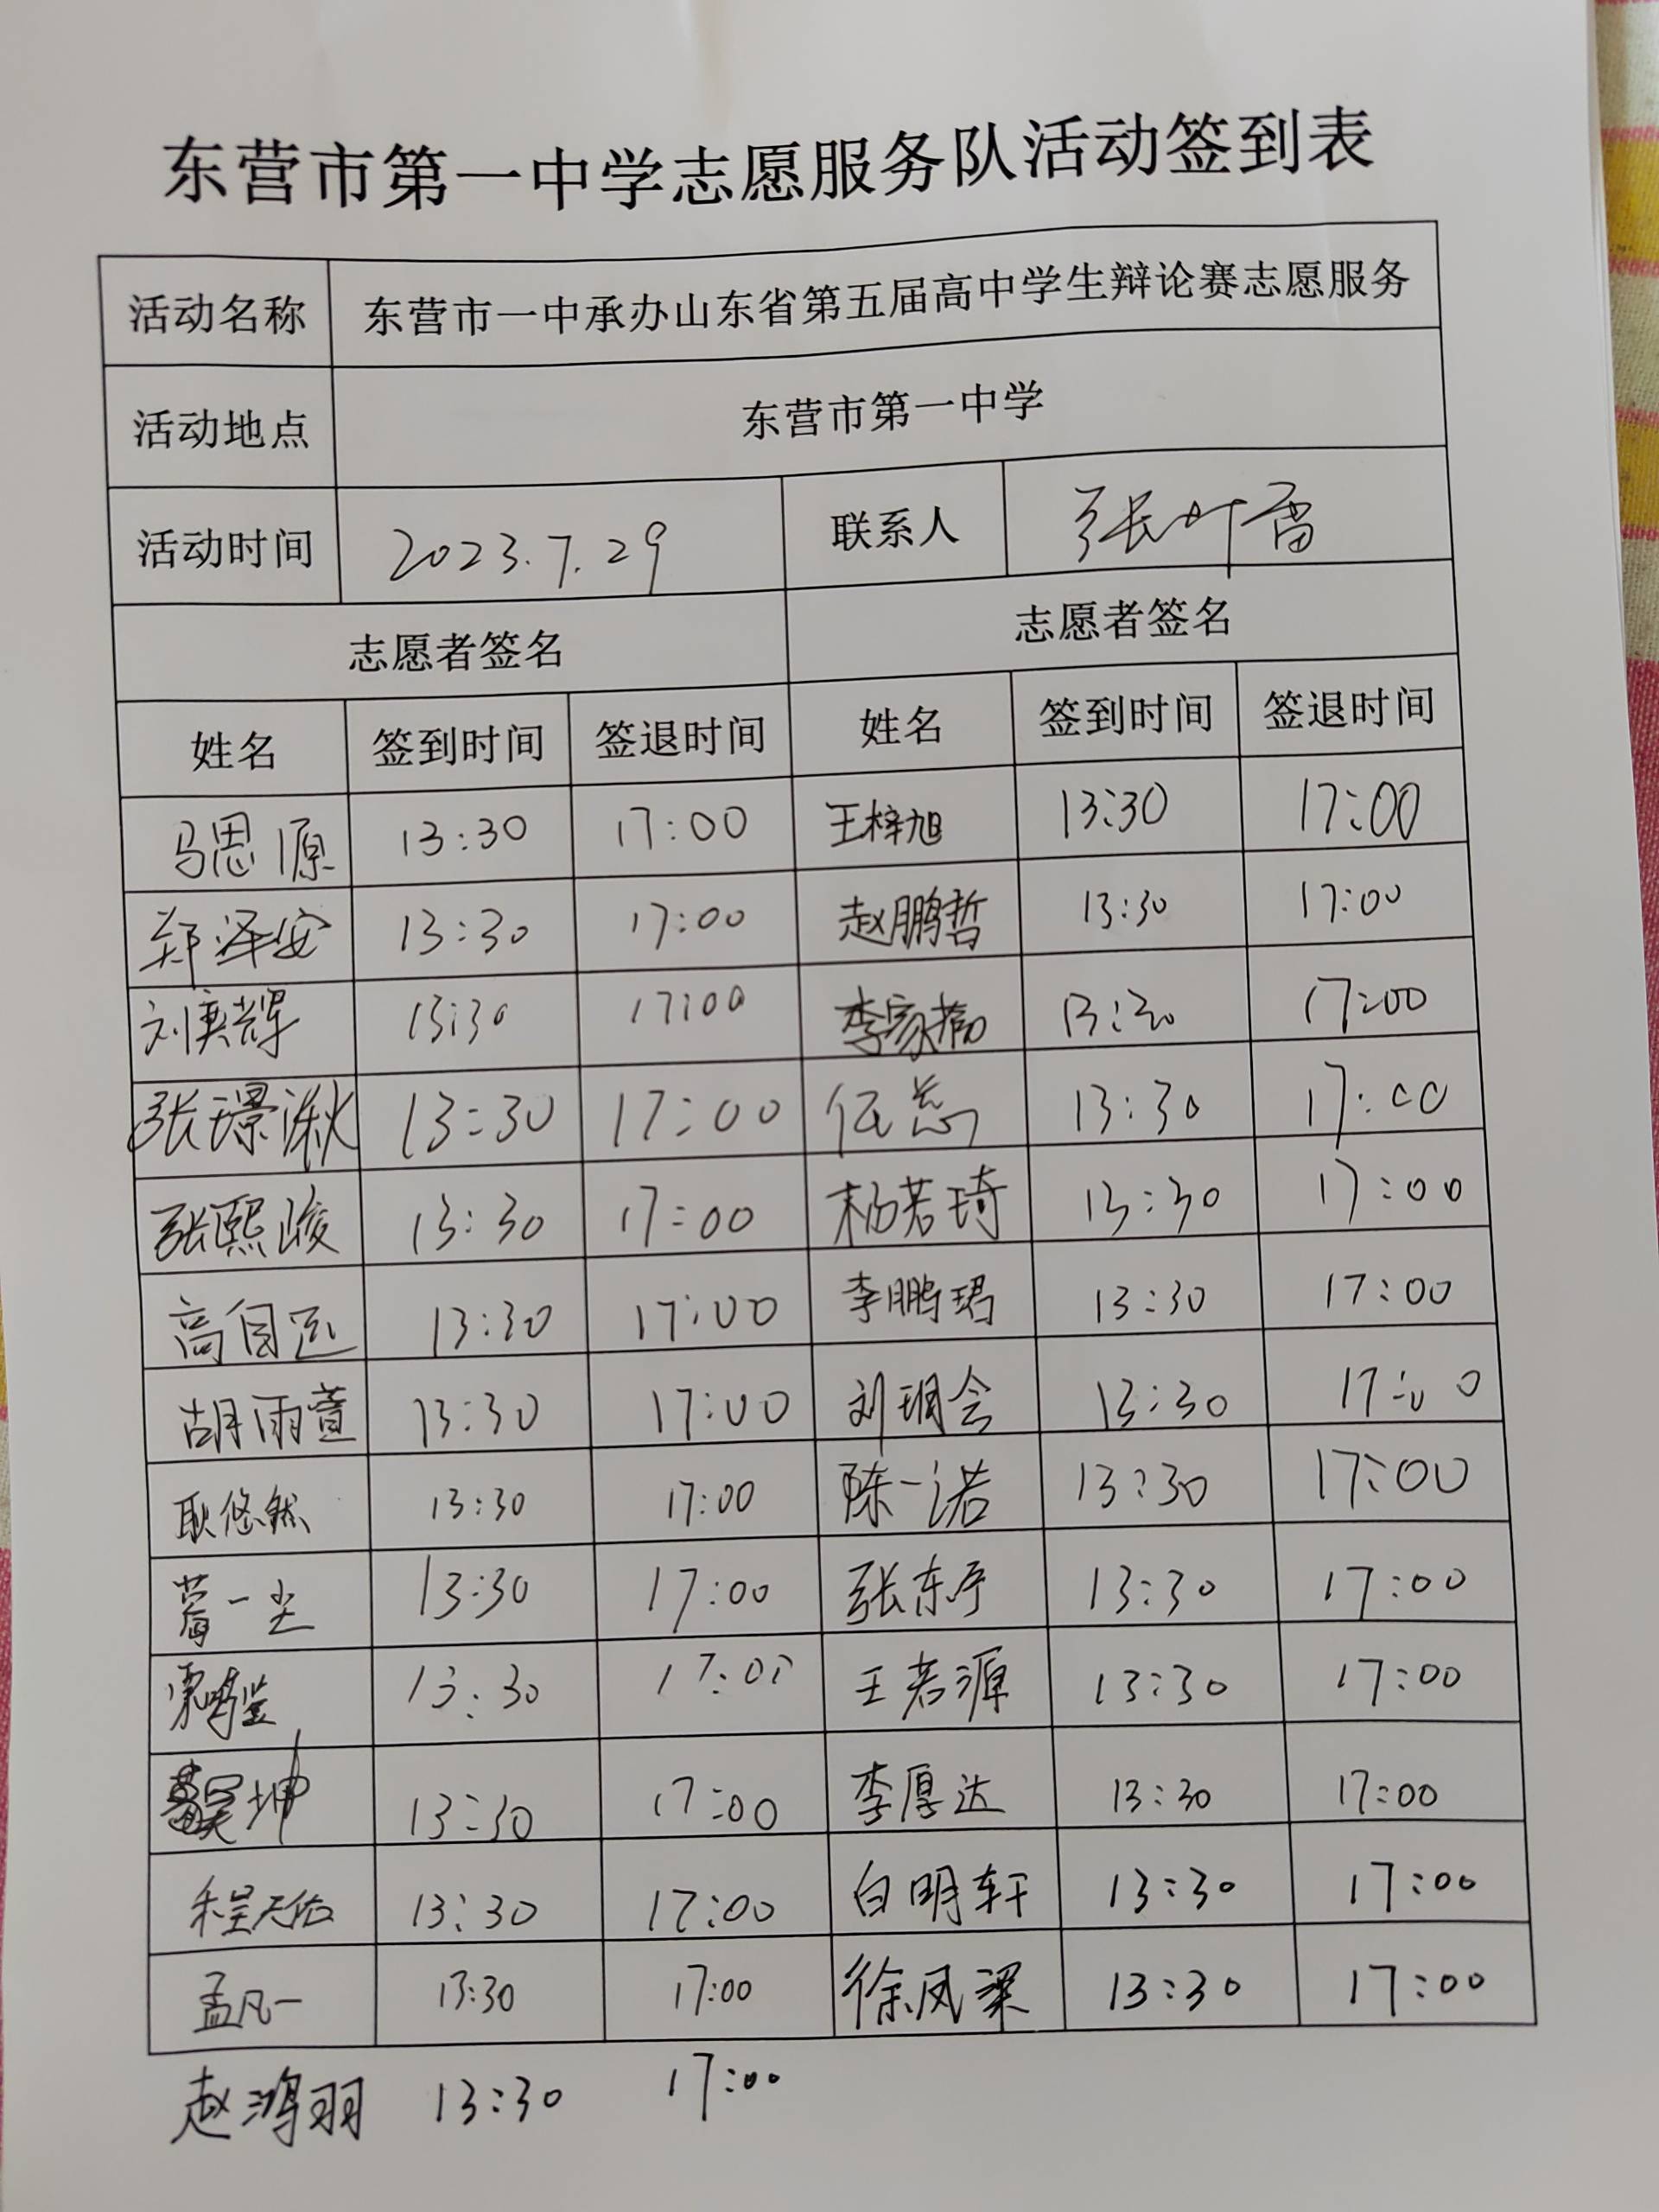 东营市第一中学志愿服务队活动签到表
活动名称 东营市一中承办山东省第五届高中学生辩论赛志愿服务
活动地点 东营市第一中学
活动时间 2023.7.29 联系人 张叶雷
志愿者签名 志愿者签名
姓名 签到时间 签退时间 姓名 签到时间 签退时间
马思源 13:30 17:00 王梓旭 13:30 17:00
郑泽安 13:30 17:00 赵鹏哲 13:30 17:00
刘奕辉 13:30 17:00 李家 13:30 17:00
张璟湫 13:30 17:00 任蕊 13:30 17:00
张熙峻 13:30 17:00 杨若琦 13:30 17:00
高自远 13:30 17:00 李鹏珺 13:30 17:00
胡雨萱 13:30 17:00 刘珊会 13:30 17:00
耿悠然 13:30 17:00 陈一诺 13:30 17:00
一尘 13:30 17:00 张东宇 13:30 17:00
13:30 17:00 王若源 13:30 17:00
吴坤 13:30 17:00 李厚达 13:30 17:00
程天佑 13:30 17:00 白明轩 13:30 17:00
孟凡一 13:30 17:00 徐凤梁 13:30 17:00
赵鸿羽 13:30 17:00